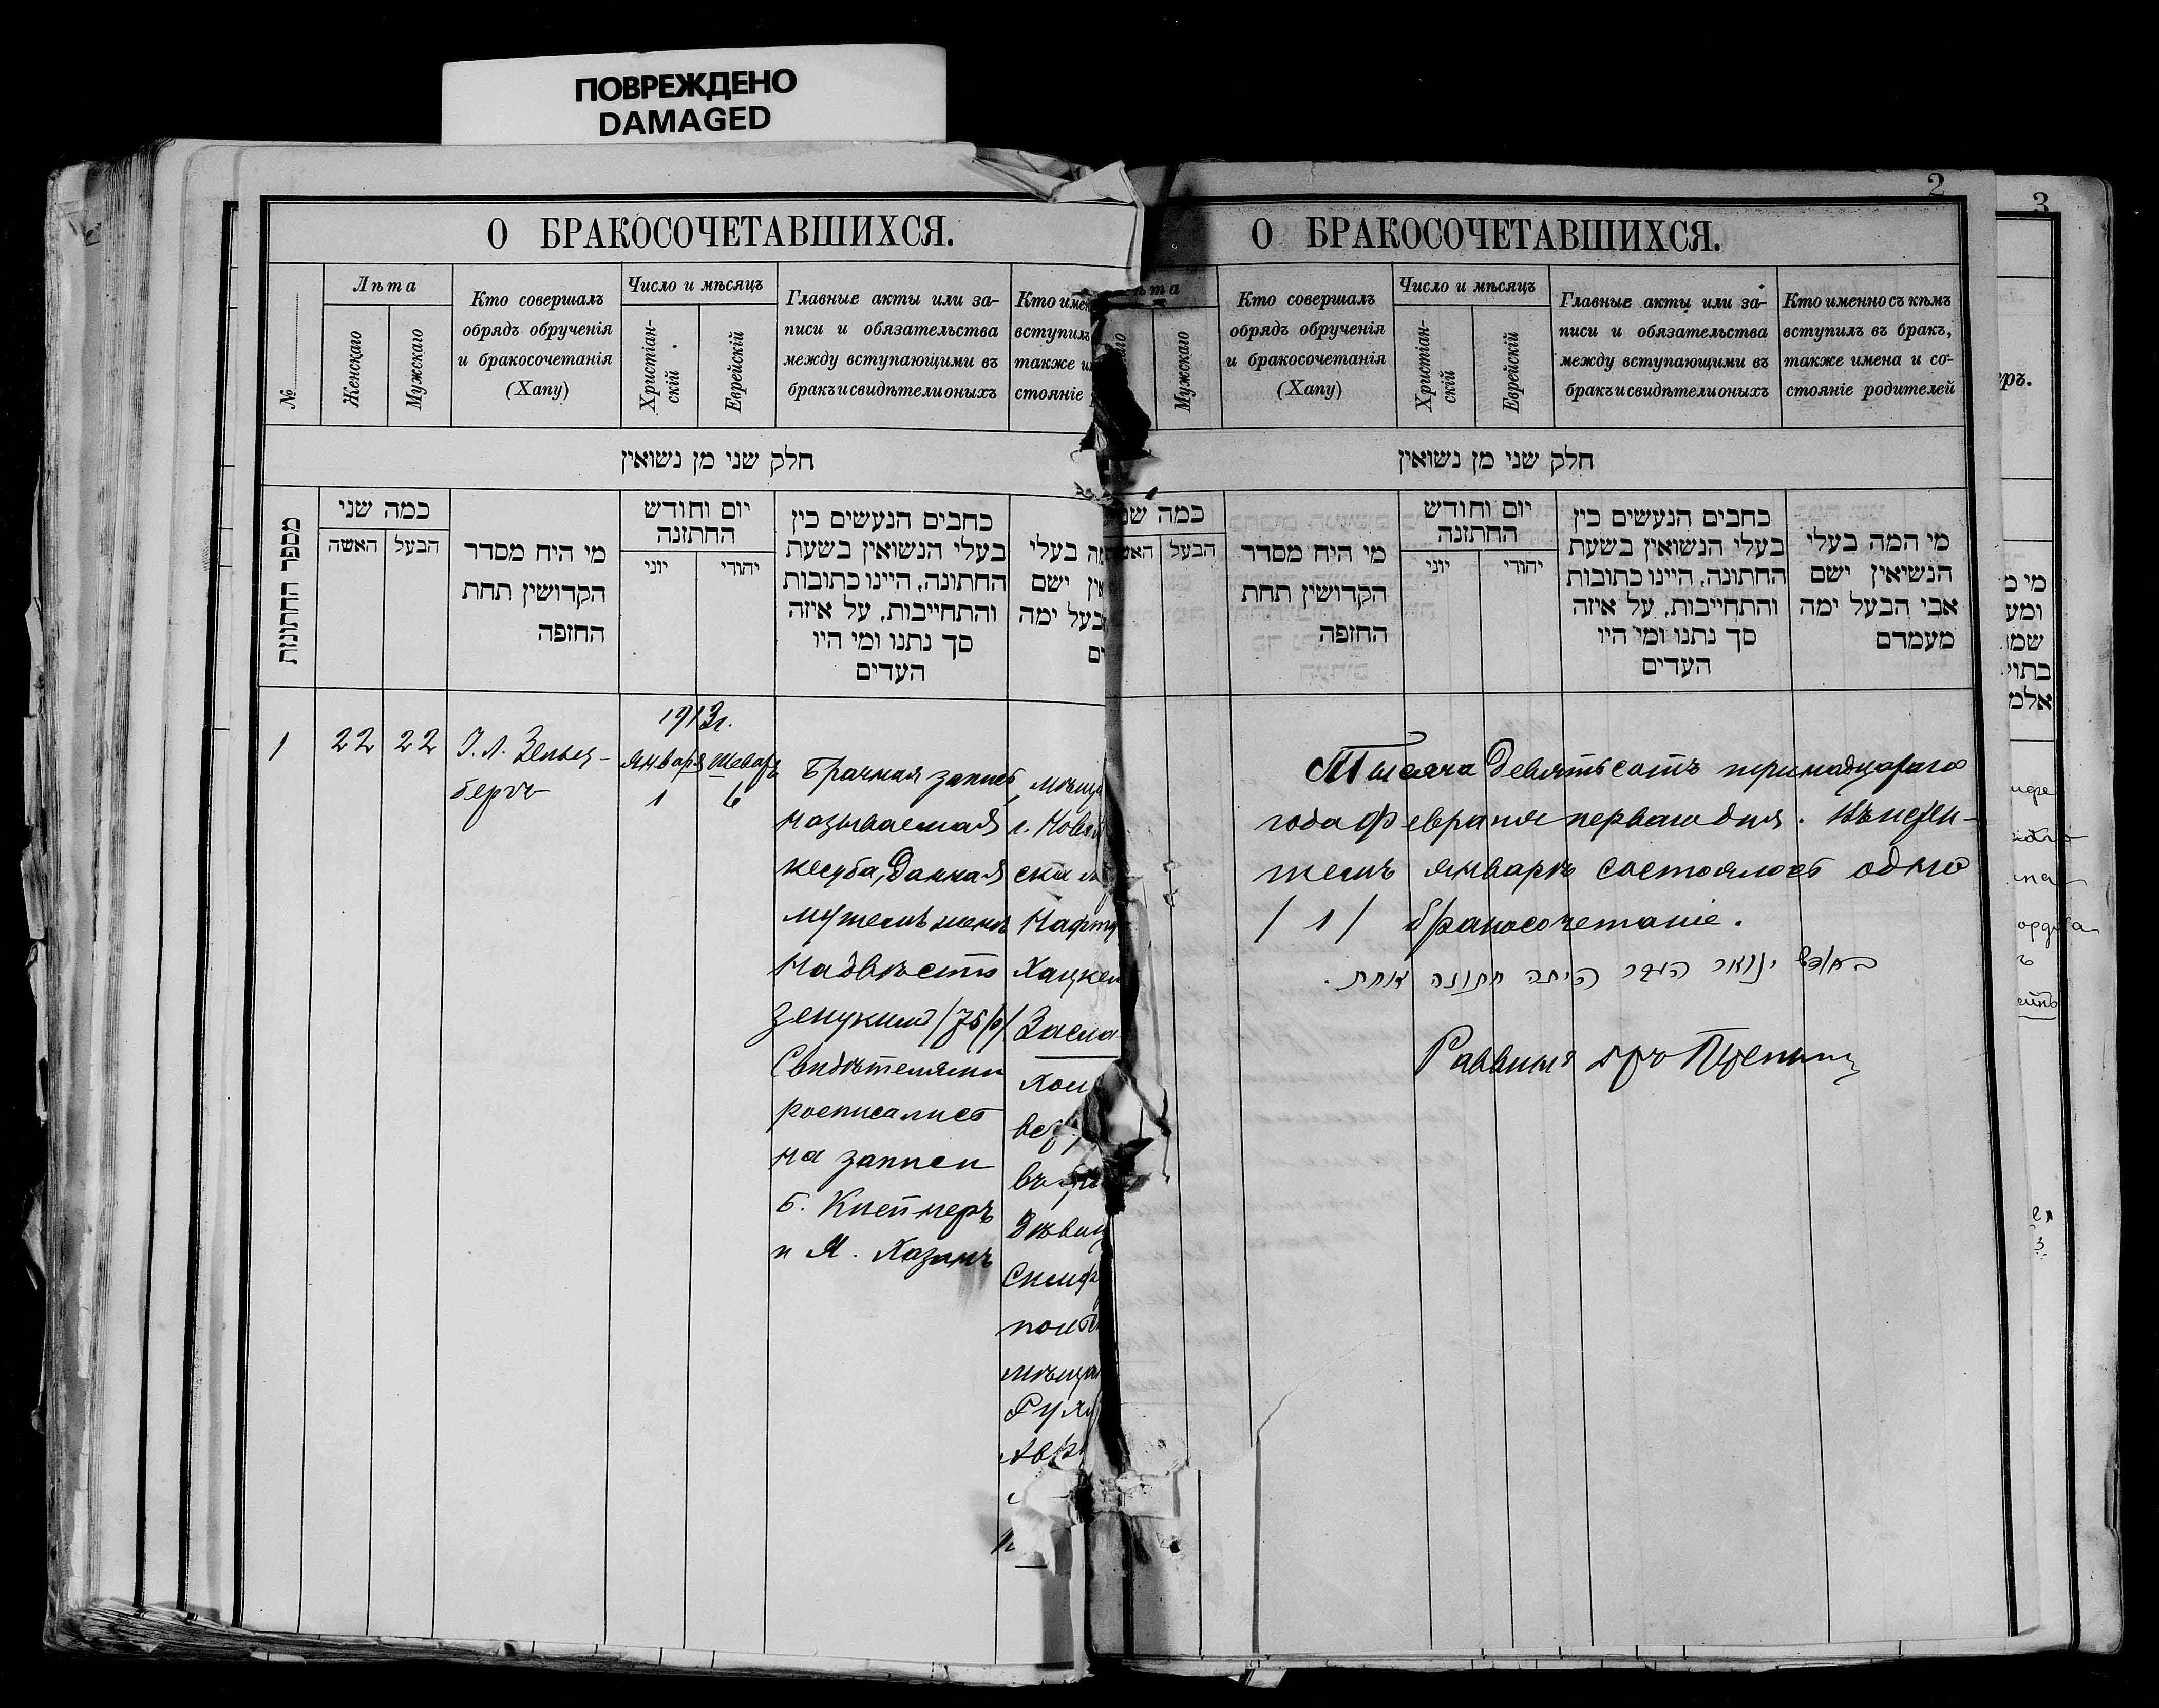 ПОВРЕЖДЕНО
DAMAGED
О БРАКОСОЧЕТАВШИХСЯ.
№
Лѣта
Женскаго
Мужскаго
Кто совершалъ
обрядъ обрученія
и бракосочетанія
(Хапу)
Число и мѣсяцъ
Христіан-
скій
Еврейскій
Главные акты или за-
писи и обязательства
между вступающими въ
бракъ и свидѣтели оныхъ
Кто имен
вступилъ
также и
стояніе
חלק שני מן נשואין
מספר החתונות
כמה שני
האשה
הבעל
מי היח מסדר
הקדושין תחת
החזפה
יום וחודש
החתזנה
יוני
יהודי
כחבים הנעשים כין
בעלי הנשואין בשעת
החתונה, היינו כתובות
והתחייבות, על איזה
סך נתנו ומי היו
העדים
מה בעלי
אין ישם
בעל ימה
ים
1
22
22
І. Л. Зельц-
бергъ
1913 г.
Января
1
Шеватъ
6
Брачная запись
называемая
кесуба, данная
мужемъ женѣ
на двѣсти
зенукимъ /75 р/
Свидѣтелями
росписались
на записи
Б. Клейнеръ
и М. Хазанъ
мѣща
г. Нова
ска
Нафту
Хацкел
Засла
въ
Дѣвиц
Симф
поль
мѣща
Авр
2
О БРАКОСОЧЕТАВШИХСЯ.
ѣта
Мужскаго
Кто совершалъ
обрядъ обрученія
и бракосочетанія
(Хапу)
Число и мѣсяцъ
Христіан-
скій
Еврейскій
Главные акты или за-
писи и обязательства
между вступающими въ
бракъ и свидѣтели оныхъ
Кто именно съ кѣмъ
вступилъ въ бракъ,
также имена и со-
стояніе родителей
חלק שני מן נשואין
כמה שנ
האש
הבעל
מי היח מסדר
הקדושין תחת
החזפה
יום וחודש
החתזנה
יוני
יהודי
כחבים הנעשים כין
בעלי הנשואין בשעת
החתונה, היינו כתובות
והתחייבות, על איזה
סך נתנו ומי היו
העדים
מי המה בעלי
הנשיאין ישם
אבי הבעל ימה
מעמדם
Тысяча девятьсотъ тринадцатаго
года февраля перваго дня. Въ истек-
шемъ январѣ состоялось одно
/1/ бракосочетаніе.
בחודש ינואר העבר היתה חתונה אחת.
Раввинъ
3
ръ.
מי מ
ומע
שמו
כתוי
אלמ